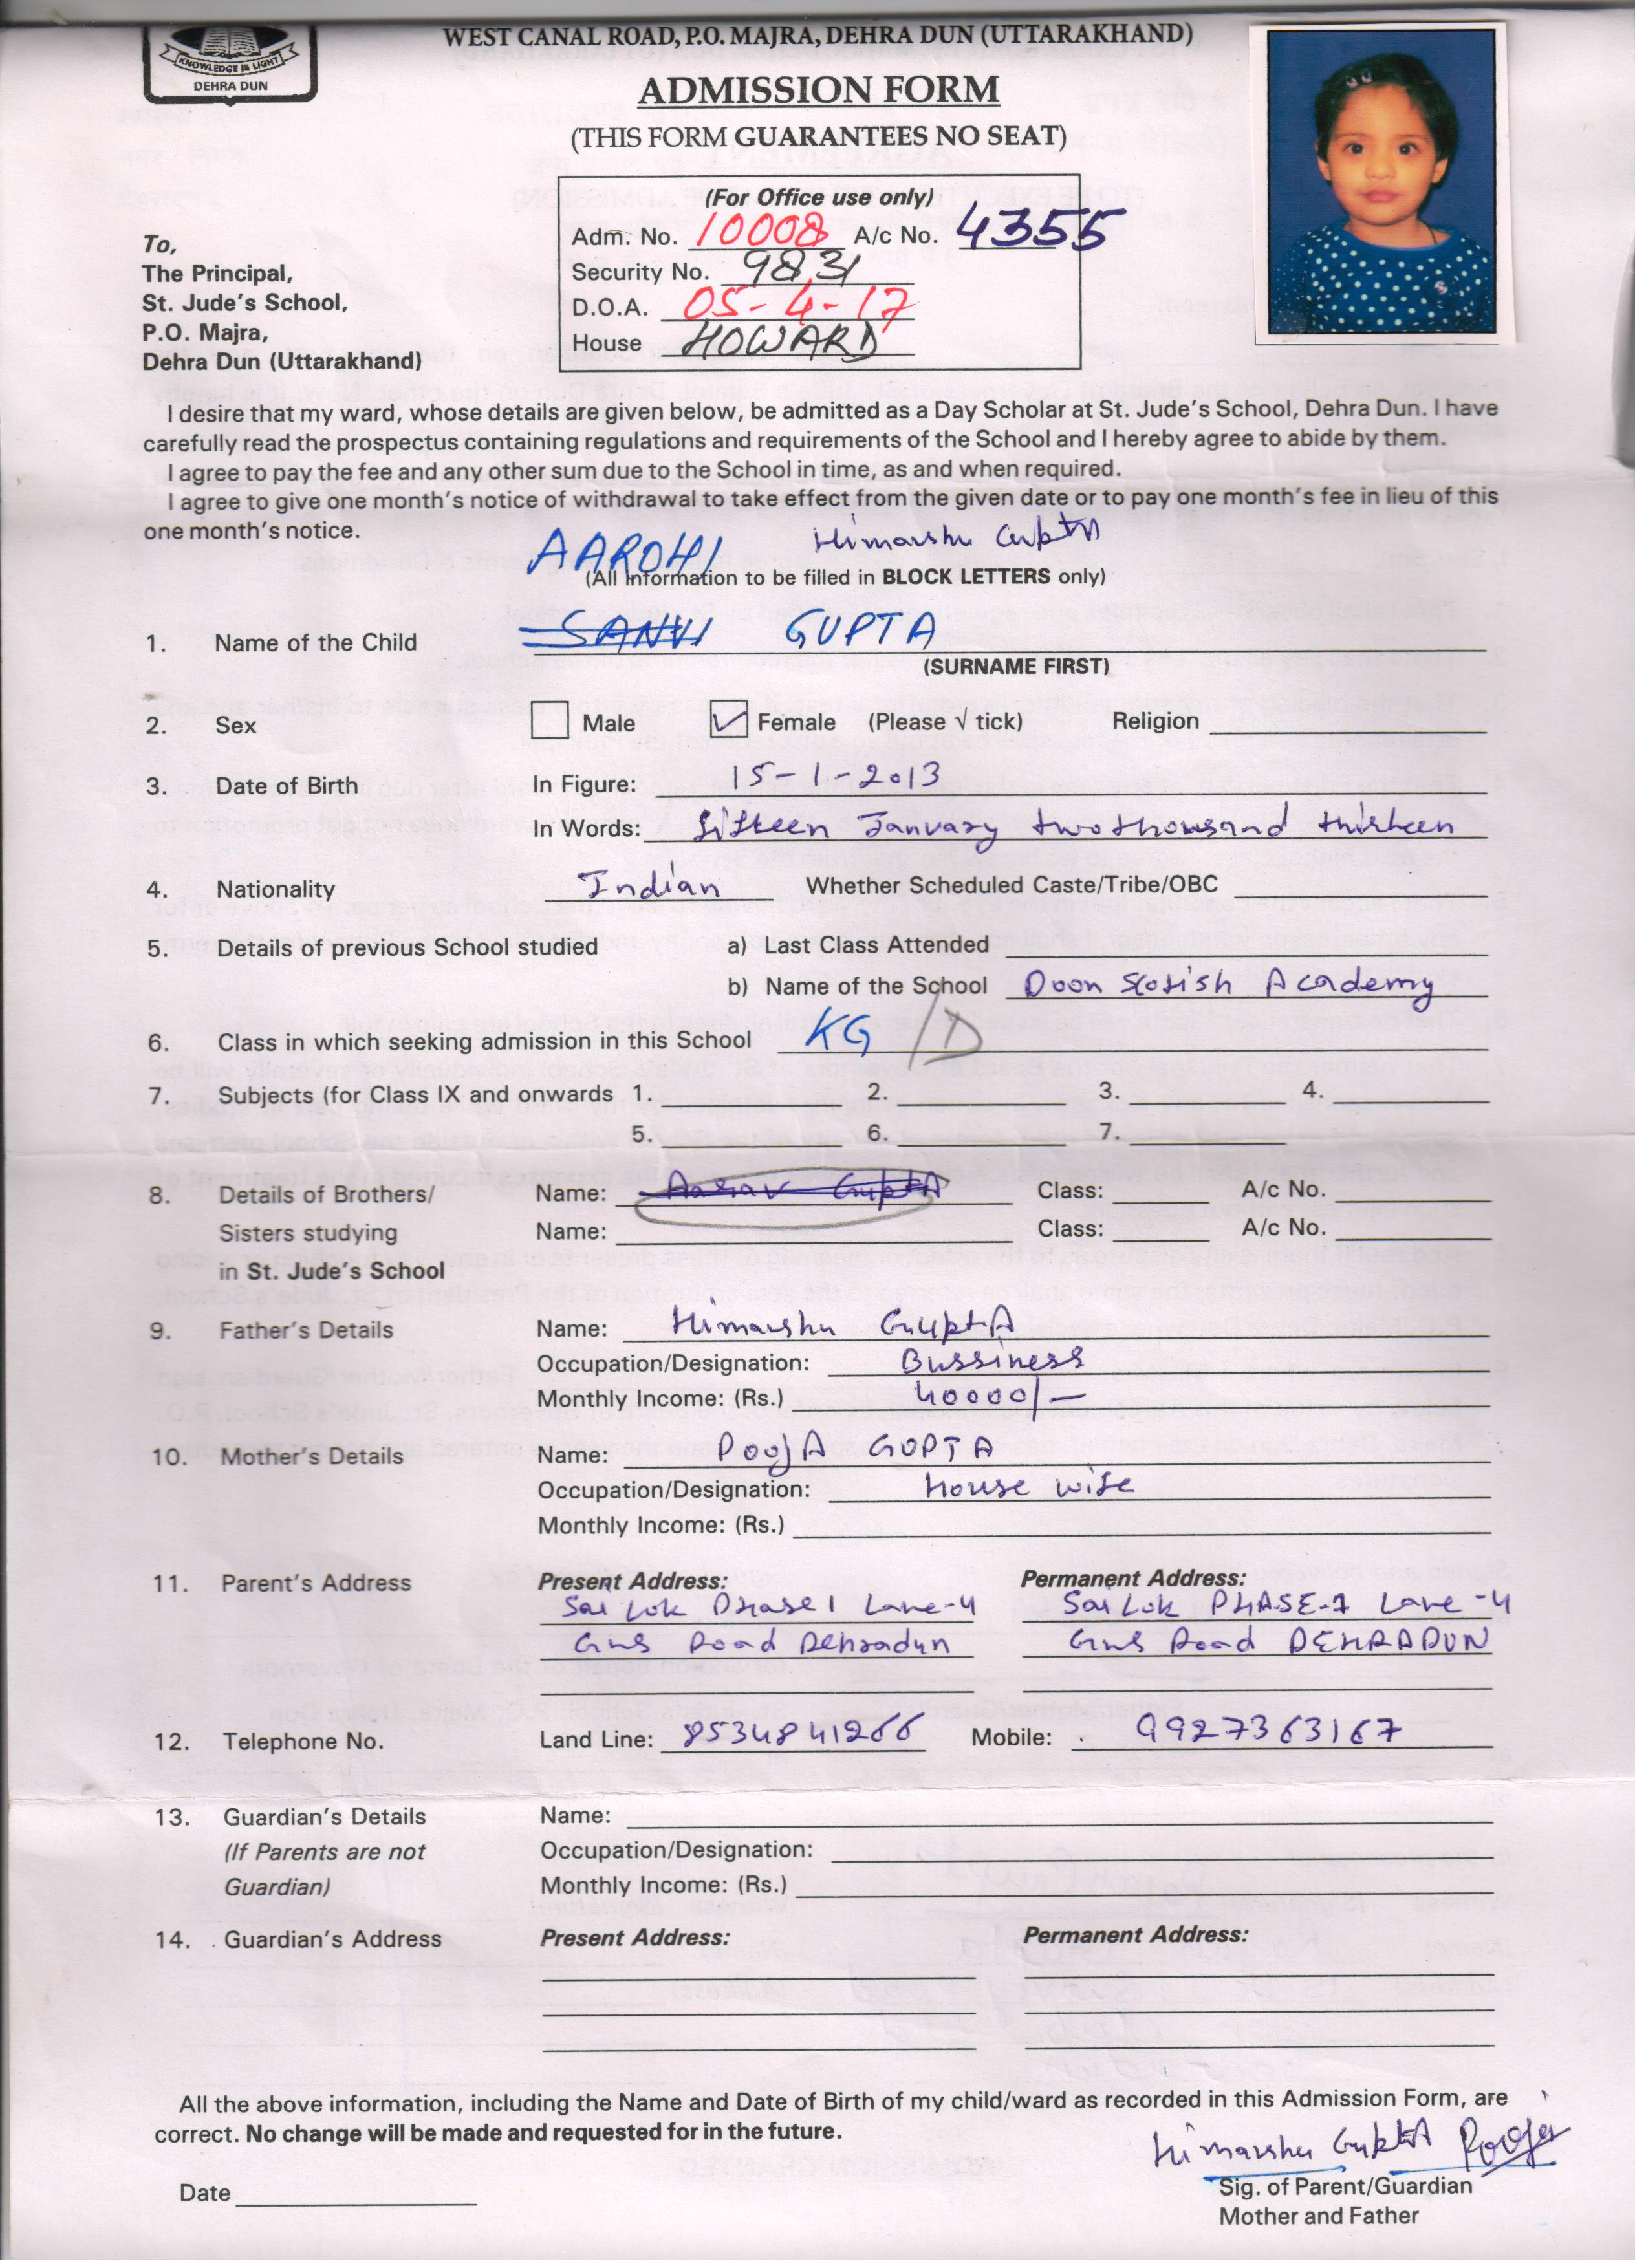 KNOWLEDGE IS LIGHT
DEHRA DUN
WEST CANAL ROAD, P.O. MAJRA, DEHRA DUN (UTTARAKHAND)
ADMISSION FORM
(THIS FORM GUARANTEES NO SEAT)
(For Office use only)
Adm. No. 10008 A/c No. 4355
Security No. 9831
D.O.A. 05-4-17
House HOWARD
To,
The Principal,
St. Jude's School,
P.O. Majra,
Dehra Dun (Uttarakhand)
I desire that my ward, whose details are given below, be admitted as a Day Scholar at St. Jude's School, Dehra Dun. I have
carefully read the prospectus containing regulations and requirements of the School and I hereby agree to abide by them.
I agree to pay the fee and any other sum due to the School in time, as and when required.
I agree to give one month's notice of withdrawal to take effect from the given date or to pay one month's fee in lieu of this
one month's notice.
AAROHI Himanshu Gupta
(All Information to be filled in BLOCK LETTERS only)
1. Name of the Child SANVI GUPTA
(SURNAME FIRST)
2. Sex Male Female (Please √ tick) Religion
3. Date of Birth In Figure: 15-1-2013
In Words: fifteen January two thousand thirteen
4. Nationality Indian Whether Scheduled Caste/Tribe/OBC
5. Details of previous School studied a) Last Class Attended
b) Name of the School Doon Scotish Academy
6. Class in which seeking admission in this School KG /D
7. Subjects (for Class IX and onwards 1. 2. 3. 4.
5. 6. 7.
8. Details of Brothers/ Name: Aarav Gupta Class: A/c No.
Sisters studying Name: Class: A/c No.
in St. Jude's School
9. Father's Details Name: Himanshu Gupta
Occupation/Designation: Bussiness
Monthly Income: (Rs.) 40000/-
10. Mother's Details Name: POOJA GUPTA
Occupation/Designation: House wife
Monthly Income: (Rs.)
11. Parent's Address Present Address: Permanent Address:
Sai Lok Phase 1 Lane-4 Sai Lok PHASE-1 Lane-4
GMS Road Dehradun GMS Road DEHRADUN
12. Telephone No. Land Line: 8534841266 Mobile: 9927363167
13. Guardian's Details Name:
(If Parents are not Occupation/Designation:
Guardian) Monthly Income: (Rs.)
14. Guardian's Address Present Address: Permanent Address:
All the above information, including the Name and Date of Birth of my child/ward as recorded in this Admission Form, are
correct. No change will be made and requested for in the future.
Himanshu Gupta Pooja
Date Sig. of Parent/Guardian
Mother and Father